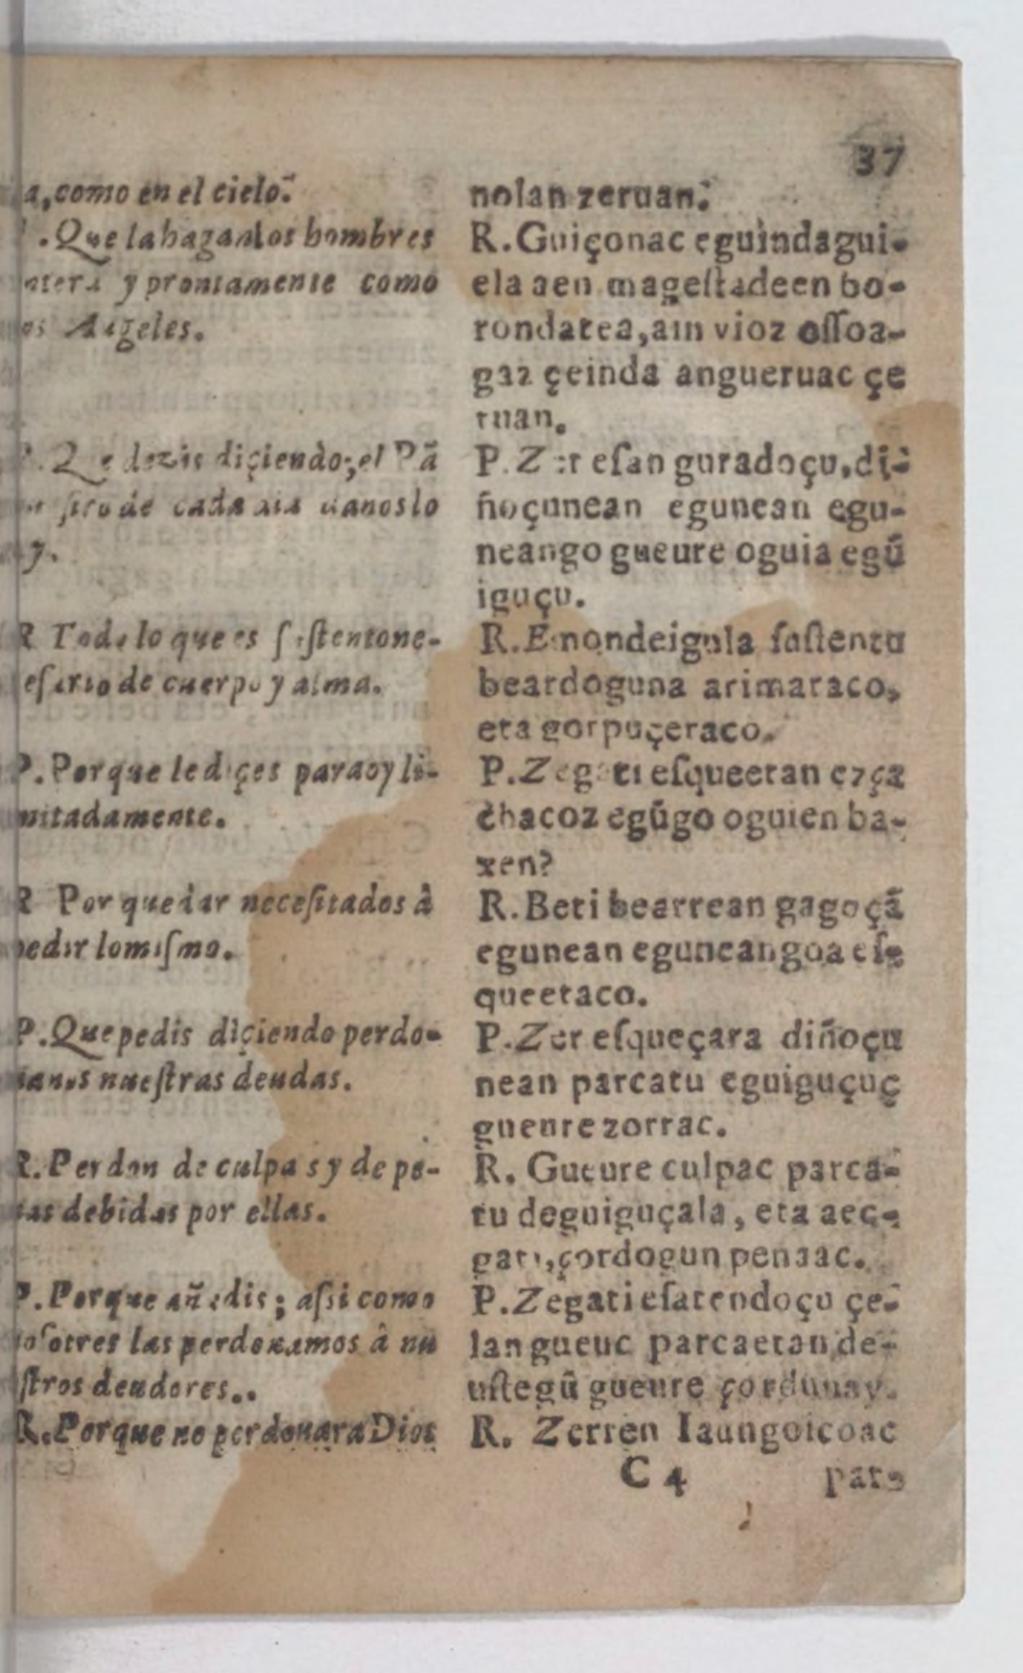 37
a, como en el cielo.
. Que la hagan los hombres
y prontamente como
os Angeles.
P. Que dezis diçiendo; el Pã
de cada dia danoslo
y.
R Todo lo que es suſtento ne-
eſario de cuerpo y alma.
P. Porque le diçes para oy li-
mitadamente.
R Por quedar neceſitados â
pedir lo miſmo.
P. Que pedis diçiendo perdo-
nanos nueſtras deudas.
R. Perdon de culpas y de pe-
nas debidas por ellas.
P. Porque añedis; aſsi como
noſotros las perdonamos â nu
ſtros deudores..
R. Porque no perdonara Dios
nolan zeruan.
R. Guiçonac eguindagui-
ela aen mageſtadeen bo-
rondatea, ain vioz oſſoa-
gaz çeinda angueruac çe
ruan.
P. Zer eſan guradoçu, di-
ñoçunean egunean egu-
neango gueure oguia egũ
iguçu.
R. Emondeigula ſuſtentu
beardoguna arimaraco,
eta gorpuçeraco.
P. Zegati eſqueetan
chacoz egũgo oguien ba-
xen?
R. Beti bearrean gagoçã
egunean eguneangoa eſe
queetaco.
P. Zer eſqueçara diñoçu
nean parcatu eguiguçuç
gueure zorrac.
R. Gueure culpac parca-
tu deguiguçala, eta aec-
gati, çordogun penaac.
P. Zegati eſatendoçu çe-
lan gueuc parcaetan de-
uſtegũ gueure çordunay.
R. Zerren Iaungoicoac
C 4
parc